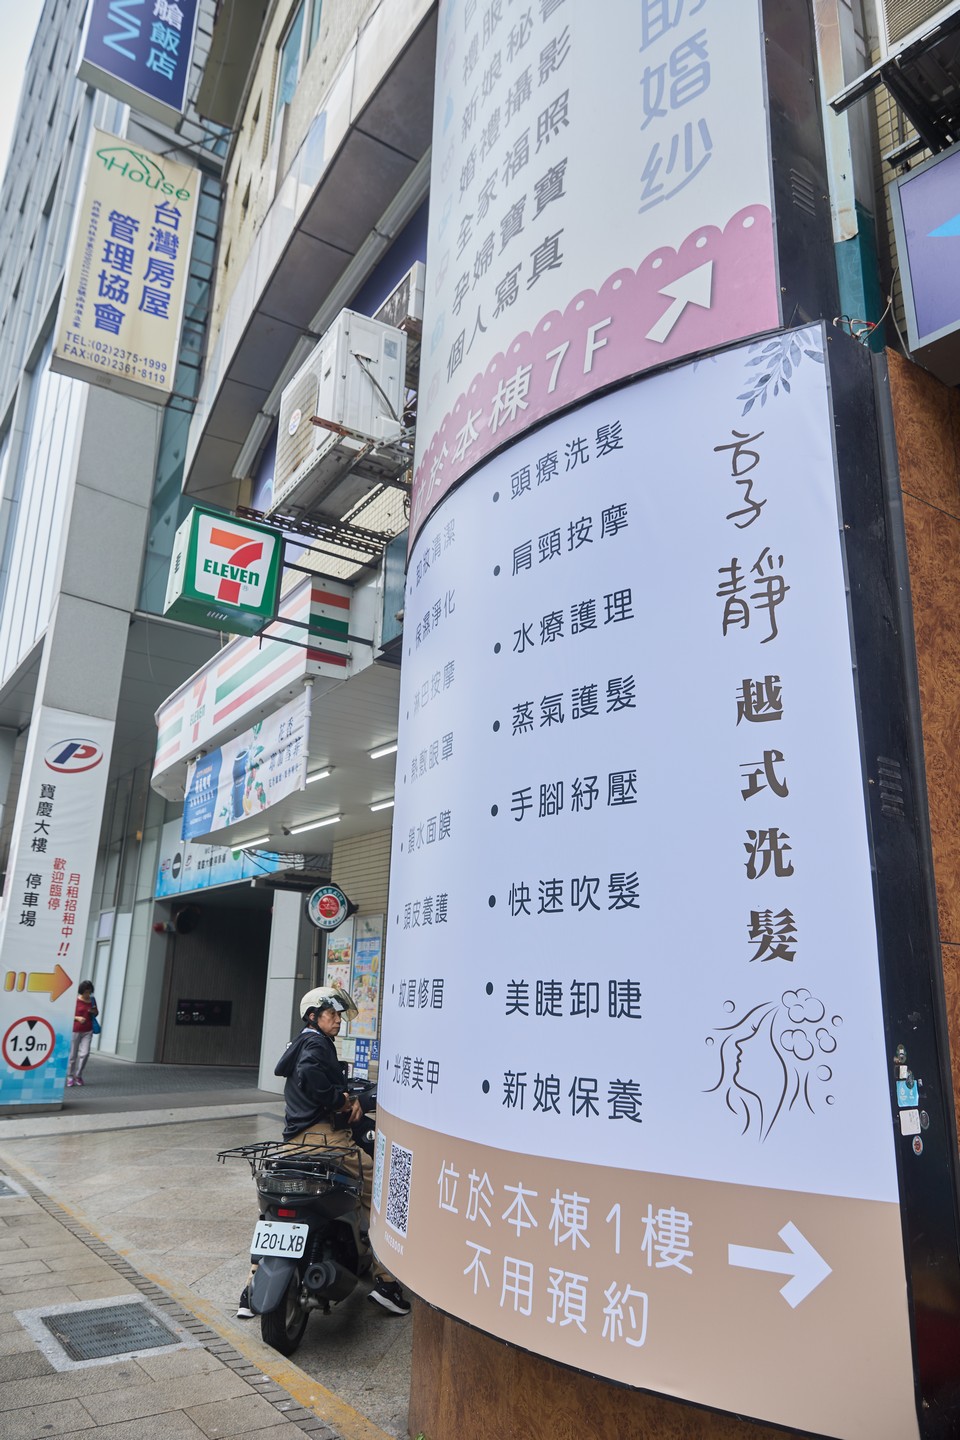 艙飯店
INN
House
台灣房屋
管理協會
TEL:(02)2375-1999
FAX:(02)2361-8119
7
ELEVEN
婚紗
婚禮攝影
全家福照
孕婦寶寶
個人寫真
位於本棟7F
享靜
越式洗髮
頭療洗髮
肩頸按摩
水療護理
蒸氣護髮
手腳紓壓
快速吹髮
美睫卸睫
新娘保養
保濕淨化
淋巴按摩
熱敷眼罩
鎖水面膜
頭皮養護
紋眉修眉
光療美甲
位於本棟1樓
不用預約
FACEBOOK
P
寶慶大樓 停車場
月租招租中!!
歡迎臨停
1.9m
120-LXB